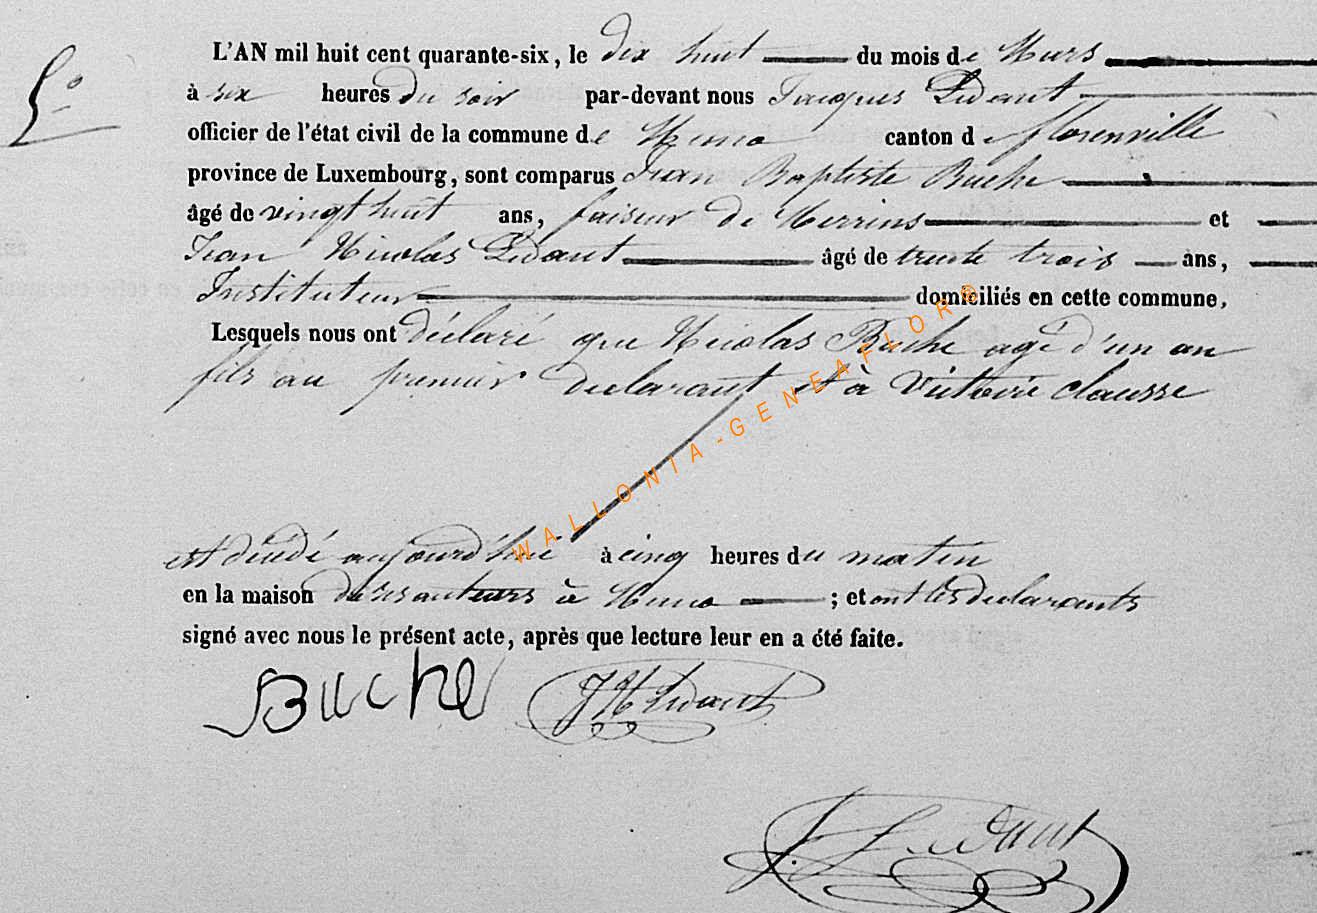 L'AN mil huit cent quarante-six, le dix huit du mois de Mars
à six heures du soir par-devant nous Jacques Ledant
officier de l'état civil de la commune de Muno canton de florenville
province de Luxembourg, sont comparus Jean Baptiste Buche
âgé de vingt huit ans, faiseur de Merrins et
Jean Nicolas Ledant âgé de trente trois ans,
Instituteur domiciliés en cette commune,
Lesquels nous ont déclaré que Nicolas Buche agé d'un an
fils au premier declarant et à Victoire Clausse
est décédé aujourd'hui à cinq heures du matin
en la maison de ses auteurs à Muno ; et ont les declarants
signé avec nous le présent acte, après que lecture leur en a été faite.
Buche JN Ledant
J. Ledant
WALLONIA-GENEAFLOR®